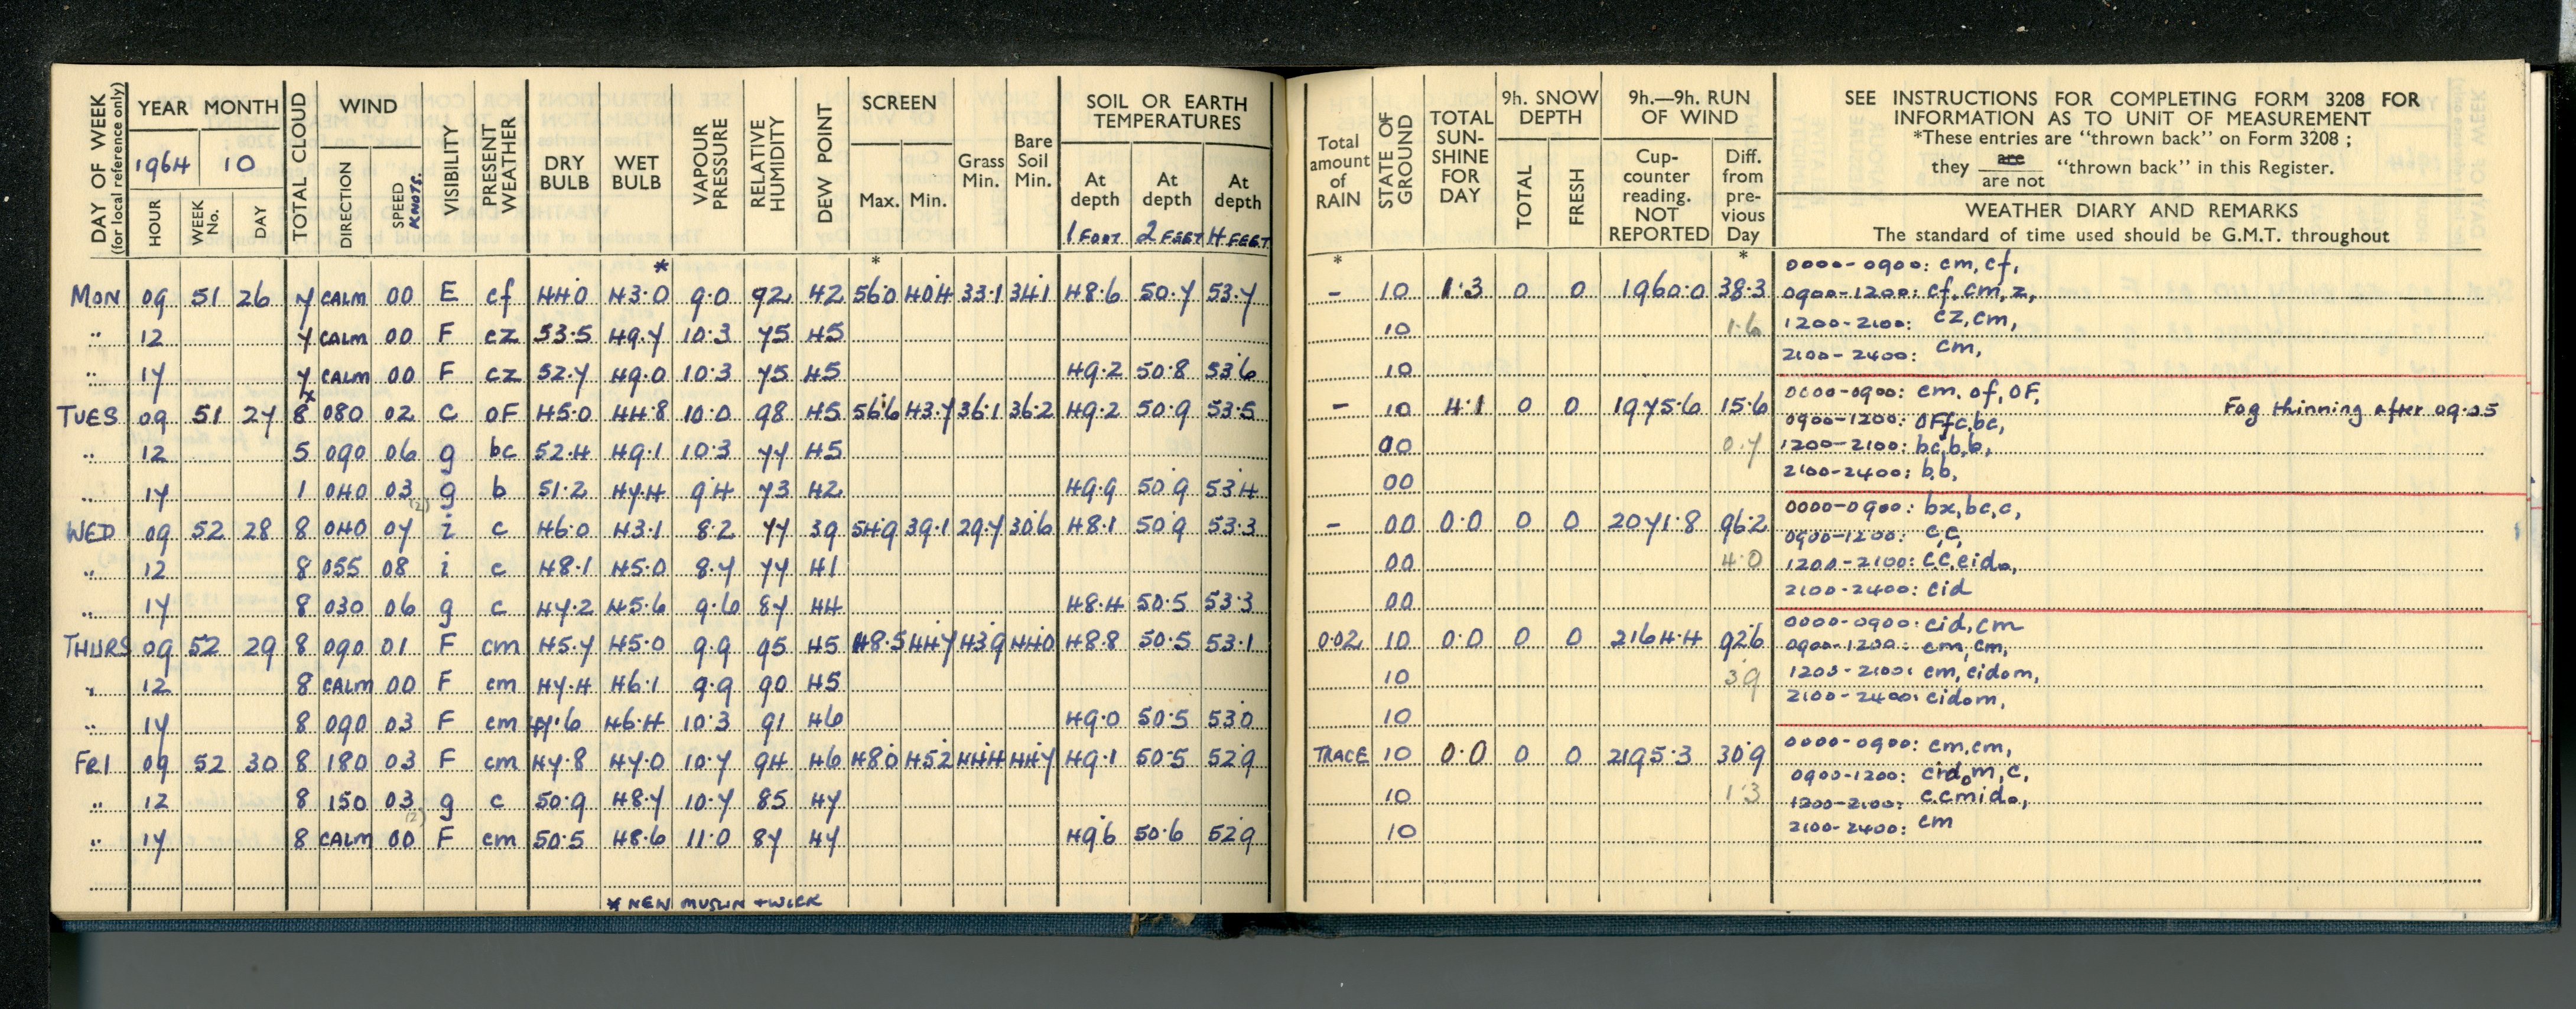 DAY OF WEEK
(for local reference only)
YEAR MONTH
1964 10
HOUR WEEK No. DAY
TOTAL CLOUD
WIND
DIRECTION SPEED KNOTS.
VISIBILITY
PRESENT WEATHER
DRY BULB WET BULB
VAPOUR PRESSURE
RELATIVE HUMIDITY
DEW POINT
SCREEN
Max. Min. Grass Min. Bare Soil Min.
SOIL OR EARTH TEMPERATURES
At depth At depth At depth
1 FOOT 2 FEET 4 FEET
Total amount of RAIN
STATE OF GROUND
TOTAL SUN-SHINE FOR DAY
9h. SNOW DEPTH
TOTAL FRESH
9h.—9h. RUN OF WIND
Cup-counter reading. NOT REPORTED
Diff. from pre-vious Day
SEE INSTRUCTIONS FOR COMPLETING FORM 3208 FOR
INFORMATION AS TO UNIT OF MEASUREMENT
*These entries are "thrown back" on Form 3208 ;
they are / are not "thrown back" in this Register.
WEATHER DIARY AND REMARKS
The standard of time used should be G.M.T. throughout
* * * *
MON 09 51 26 7 CALM 00 E cf 44.0 43.0 9.0 92 42 56.0 40.4 33.1 34.1 48.6 50.7 53.7 - 10 1.3 0 0 1960.0 38.3
" 12 7 CALM 00 F cz 53.5 49.7 10.3 75 45 10 1.6
" 17 7 CALM 00 F cz 52.7 49.0 10.3 75 45 49.2 50.8 53.6 10
0000-0900: cm, cf,
0900-1200: cf, cm, z,
1200-2100: cz, cm,
2100-2400: cm,
TUES 09 51 27 8 080 02 C OF 45.0 44.8 10.0 98 45 56.6 43.7 36.1 36.2 49.2 50.9 53.5 - 10 4.1 0 0 1975.6 15.6
" 12 5 090 06 g bc 52.4 49.1 10.3 77 45 00 0.7
" 17 1 040 03 (2) g b 51.2 47.4 9.4 73 42 49.9 50.9 53.4 00
0000-0900: cm. of, OF,
0900-1200: OFfc, bc,
1200-2100: bc, b, b,
2100-2400: b, b,
Fog thinning after 09.25
WED 09 52 28 8 040 07 i c 46.0 43.1 8.2 77 39 54.9 39.1 29.7 30.6 48.1 50.9 53.3 - 00 0.0 0 0 2071.8 96.2
" 12 8 055 08 i c 48.1 45.0 8.7 77 41 00 4.0
" 17 8 030 06 g c 47.2 45.6 9.6 87 44 48.4 50.5 53.3 00
0000-0900: bx, bc, c,
0900-1200: c, c,
1200-2100: c.c. cido,
2100-2400: cid
THURS 09 52 29 8 090 01 F cm 45.7 45.0 9.9 95 45 48.5 44.7 43.9 44.0 48.8 50.5 53.1 0.02 10 0.0 0 0 2164.4 92.6
" 12 8 CALM 00 F cm 47.4 46.1 9.9 90 45 10 3.9
" 17 8 090 03 F cm 47.6 46.4 10.3 91 46 49.0 50.5 53.0 10
0000-0900: cid, cm
0900-1200: cm, cm,
1200-2100: cm, cidom,
2100-2400: cidom,
FRI 09 52 30 8 180 03 F cm 47.8 47.0 10.7 94 46 48.0 45.2 44.4 44.7 49.1 50.5 52.9 TRACE 10 0.0 0 0 2195.3 30.9
" 12 8 150 03 (2) g c 50.9 48.7 10.7 85 47 10 1.3
" 17 8 CALM 00 F cm 50.5 48.6 11.0 87 47 49.6 50.6 52.9 10
0000-0900: cm, cm,
0900-1200: cidom, c,
1200-2100: c.cmido,
2100-2400: cm
* NEW MUSLIN + WICK